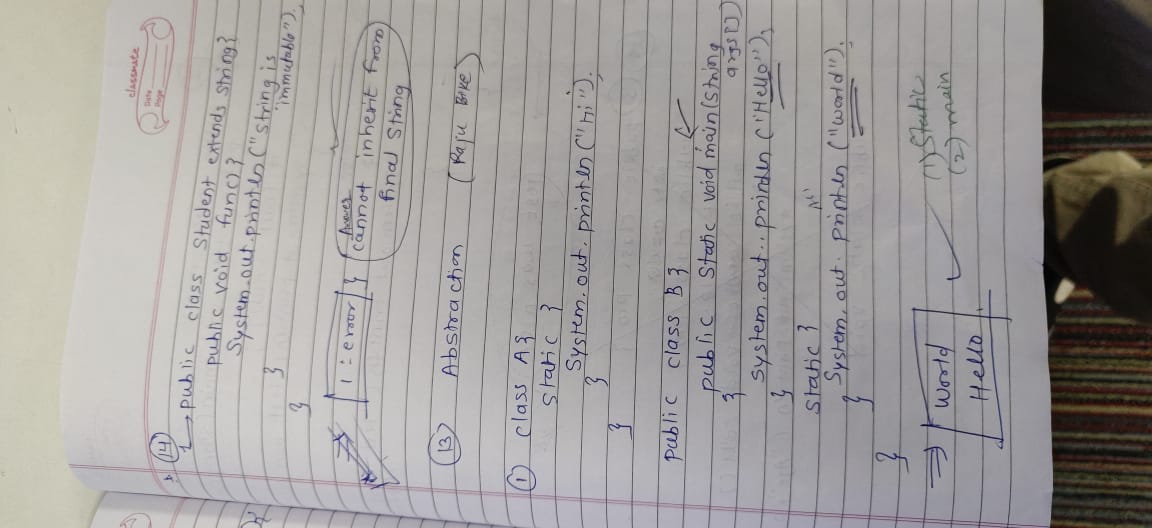 classmate
Date
Page
(14)
→ public class Student extends String{
public void func(){
System.out.println("String is
immutable").
}
}
1: error
Answer
cannot inherit from
final String
(13) Abstraction (Raju Bike)
(1) class A{
Static {
System.out.println("hi");
}
}
public class B{
public static void main(String
args[])
{
System.out..println("Hello");
}
Static {
System.out.println("world").
}
}
⇒ World
Hello
(1) Static
(2) main